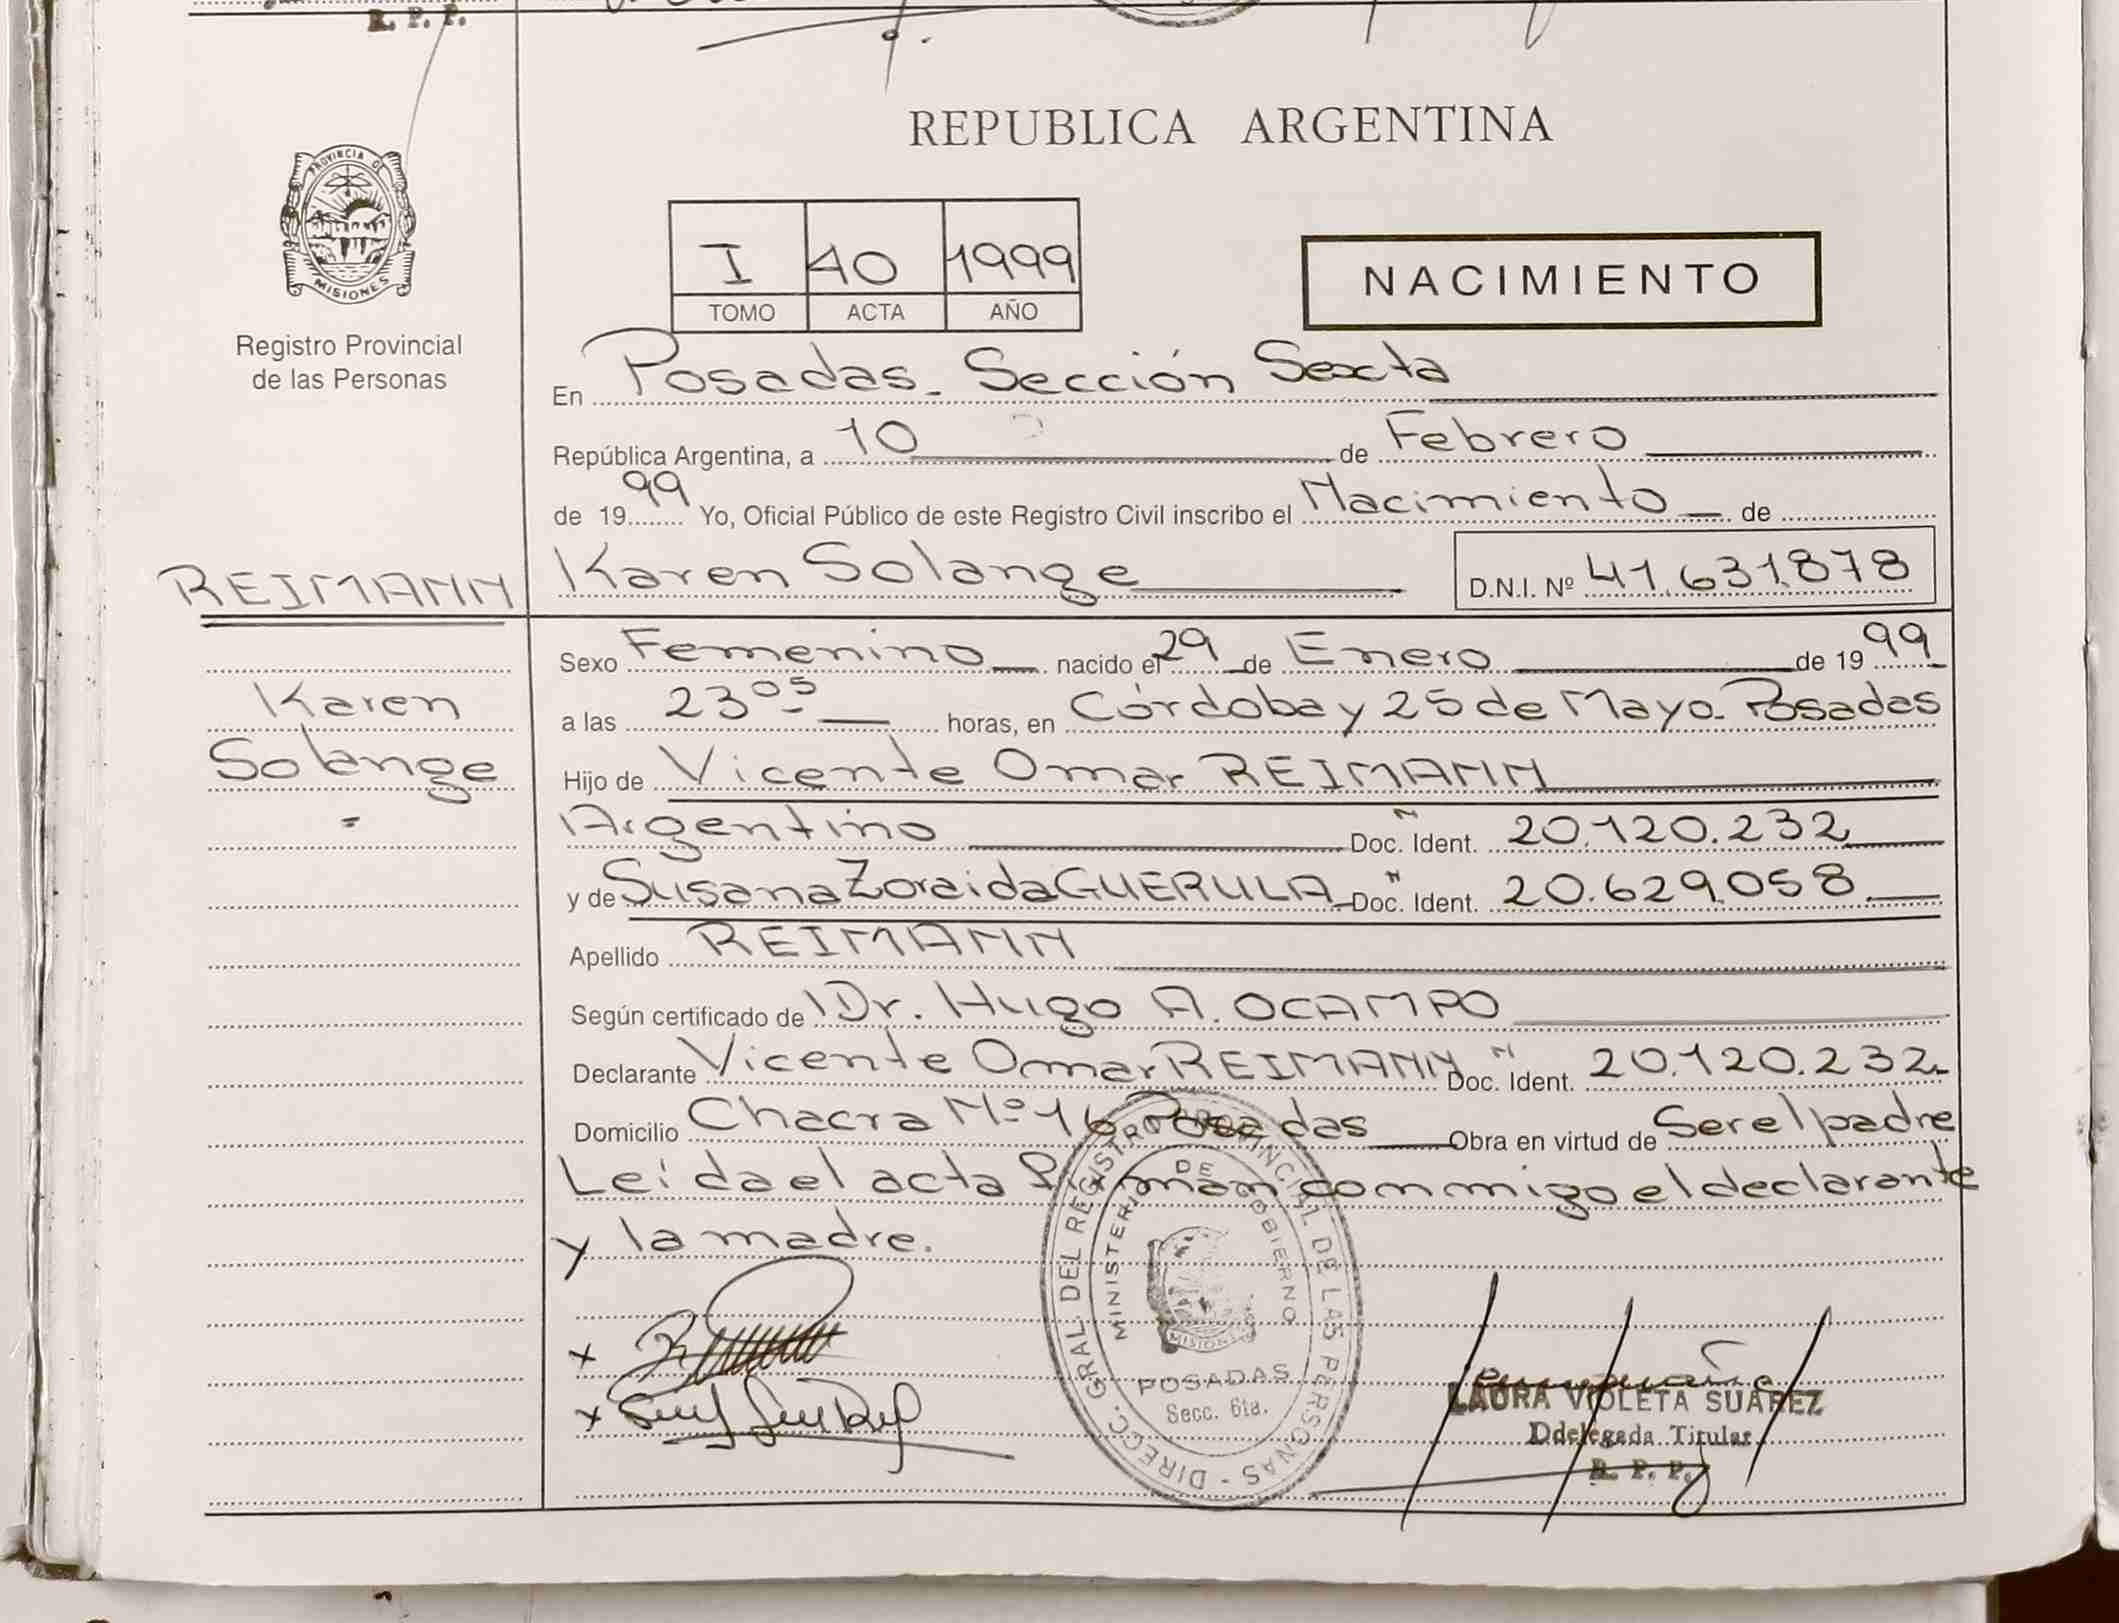 R. P. P.
REPUBLICA ARGENTINA
PROVINCIA DE
MISIONES
Registro Provincial
de las Personas
I 40 1999
TOMO ACTA AÑO
NACIMIENTO
En Posadas - Sección Sexta
República Argentina, a 10 de Febrero
de 1999 Yo, Oficial Público de este Registro Civil inscribo el Nacimiento de
REIMANN
Karen Solange D.N.I. Nº 41.631.878
Sexo Femenino nacido el 29 de Enero de 1999
Karen
a las 23 05 horas, en Córdoba y 25 de Mayo - Posadas
Solange
Hijo de Vicente Omar REIMANN
Argentino Doc. Ident. 20.120.232
y de Susana Zoraida GUERULA Doc. Ident. 20.629.058
Apellido REIMANN
Según certificado de Dr. Hugo A. OCAMPO
Declarante Vicente Omar REIMANN Doc. Ident. 20.120.232
Domicilio Chacra Nº 16 Posadas Obra en virtud de Ser el padre
Leída el acta firman conmigo el declarante
y la madre.
DIRECC. GRAL. DEL REGISTRO PROVINCIAL DE LAS PERSONAS
MINISTERIO DE GOBIERNO
MISIONES
POSADAS
Secc. 6ta.
LAURA VIOLETA SUAREZ
Ddelegada Titular
R. P. P.